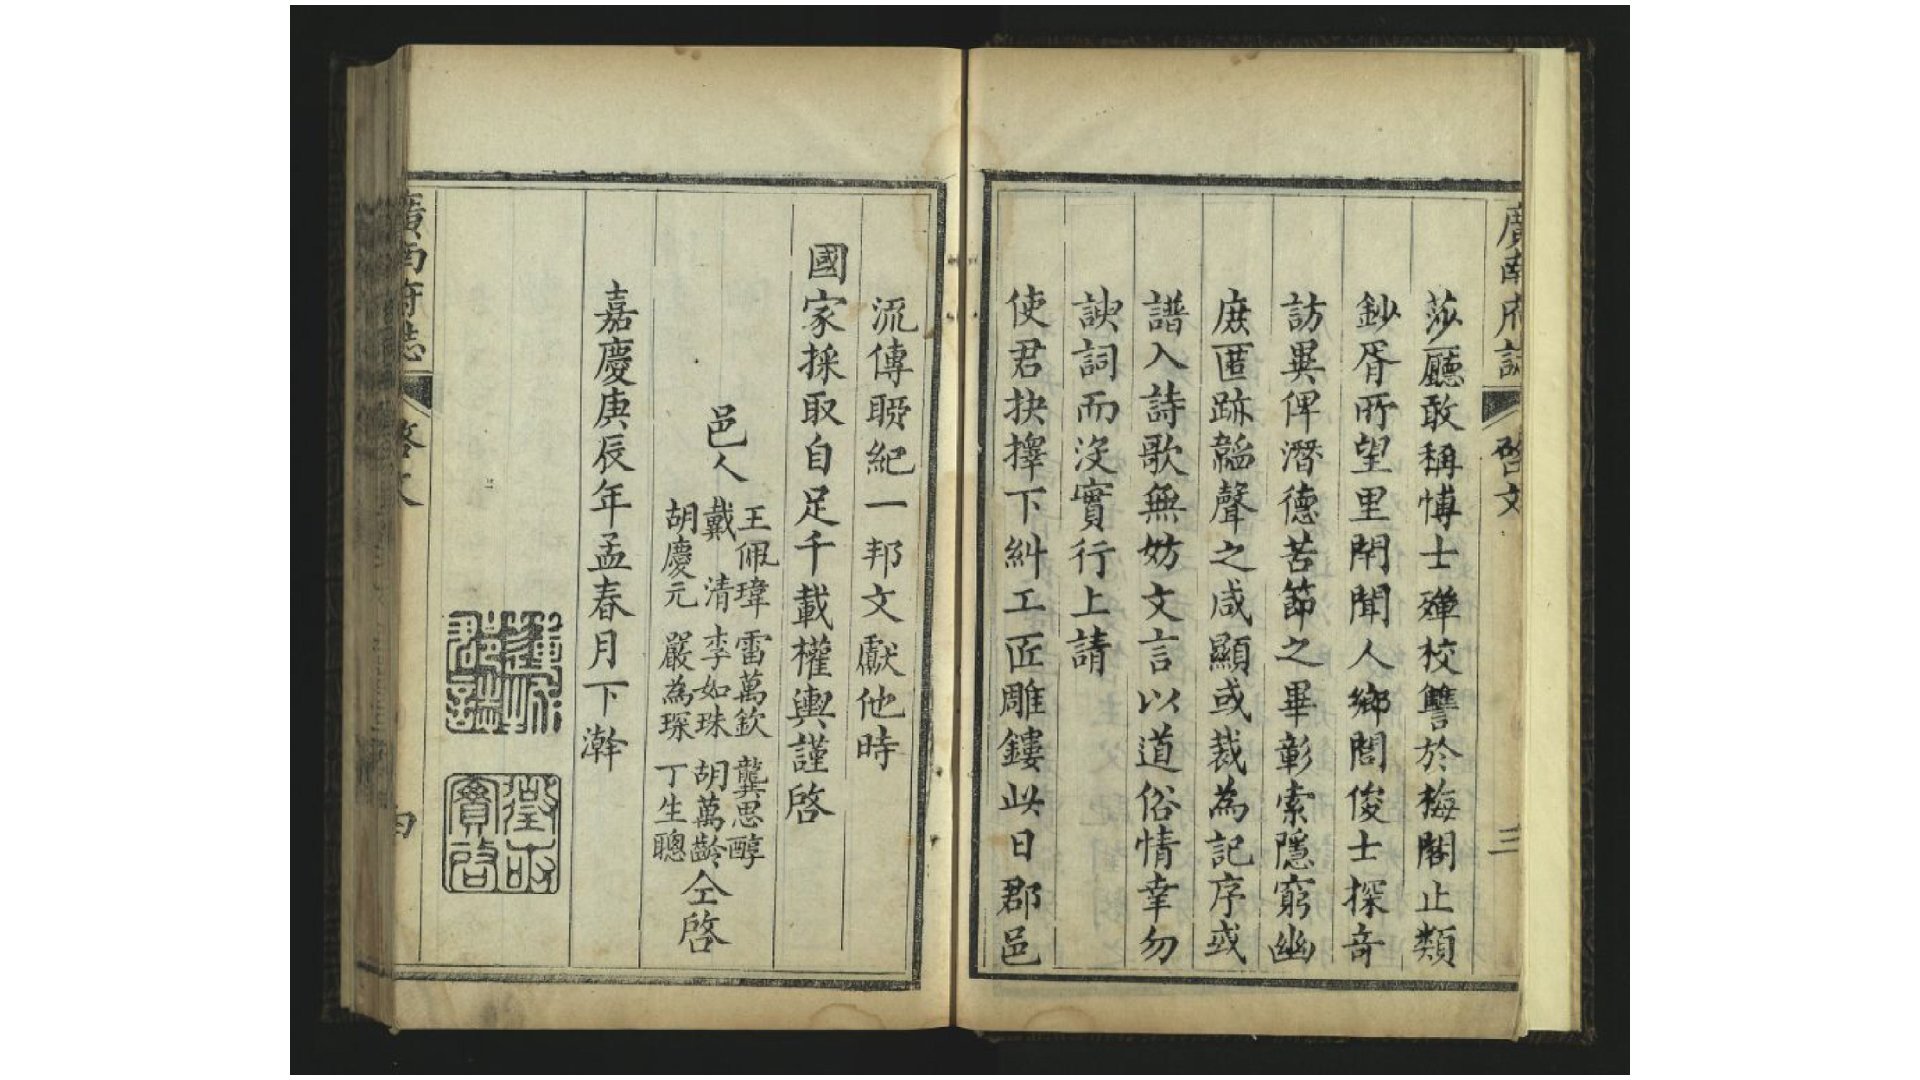 廣南府誌 啓文 三
莎廳敢稱博士殫校讐於梅閣止類
鈔胥所望里閈聞人鄉閭俊士探竒
訪異俾潛德苦節之畢彰索隱窮幽
庶匿跡韜聲之咸顯或裁為記序或
譜入詩歌無妨文言以道俗情幸勿
諛詞而沒實行上請
使君抉擇下糾工匠雕鏤此日郡邑
流傳聊紀一邦文獻他時
國家採取自足千載權輿謹啓
邑人
王佩瑋 雷萬欽 龔思醇
戴清 李如珠 胡萬齡
胡慶元 嚴為琛 丁生聰
仝啓
嘉慶庚辰年孟春月下澣
徵求實啓
廣南府誌 啓文 四